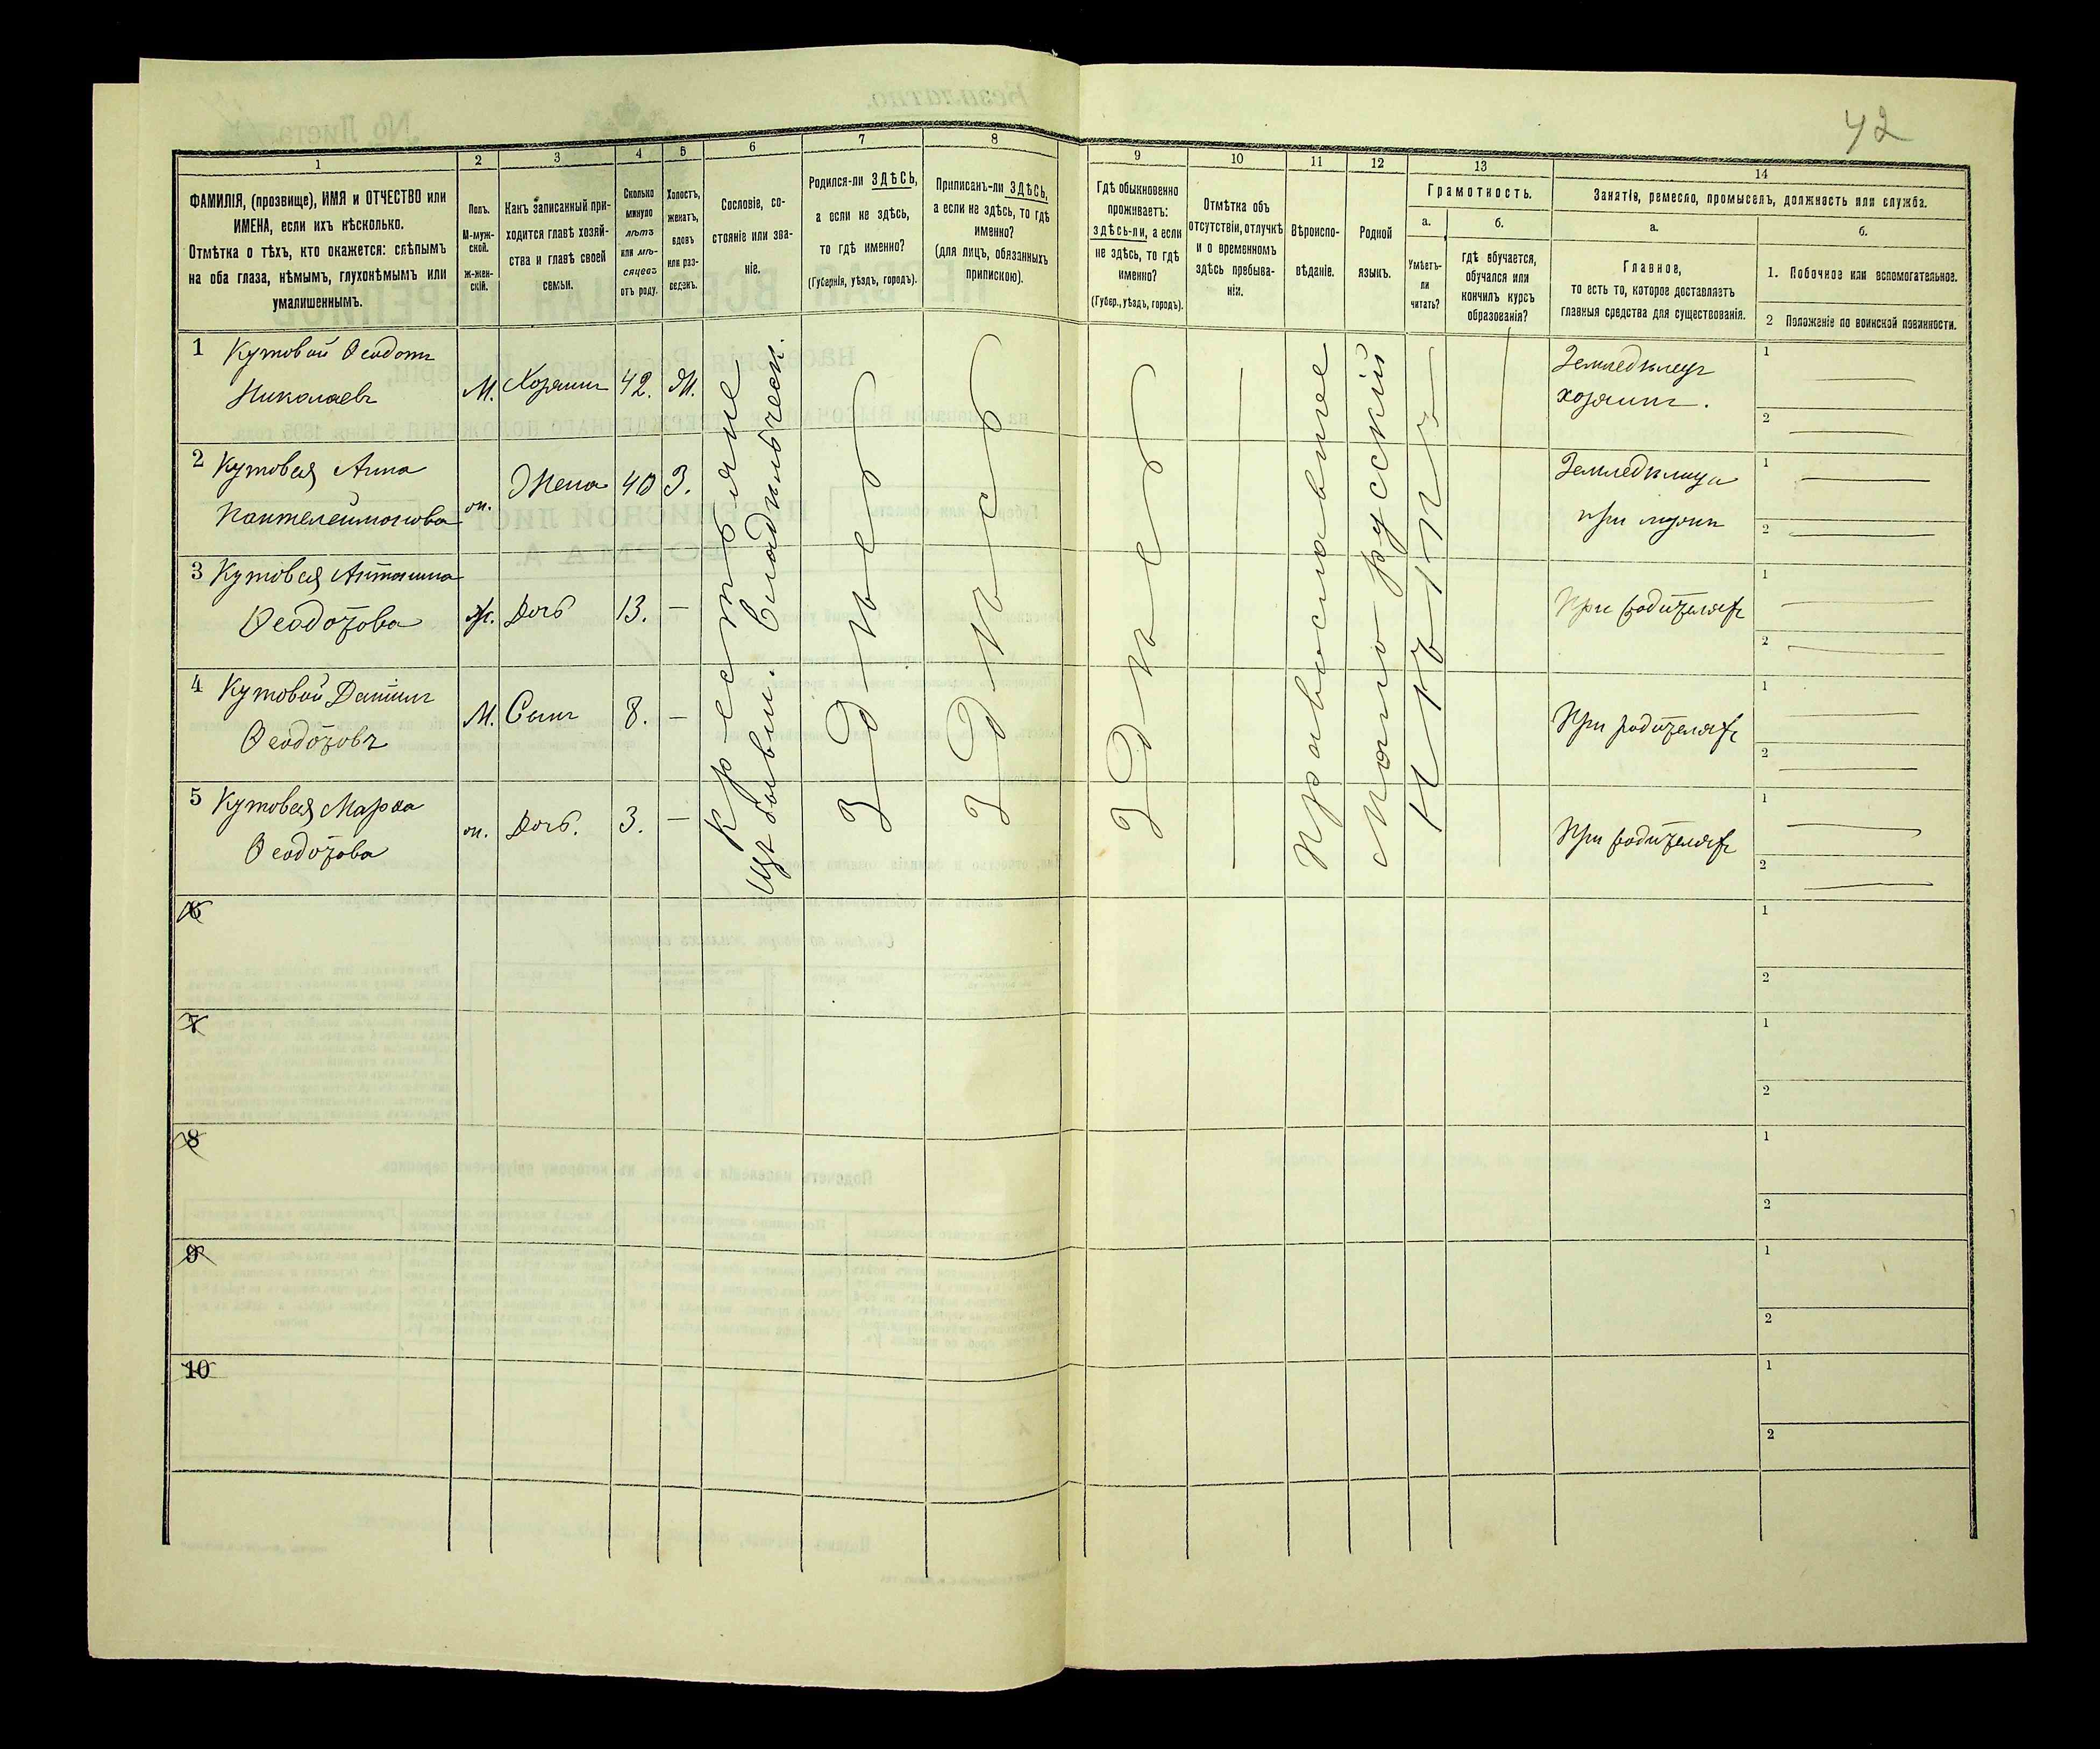 42
1
2
3
4
5
6
7
8
9
10
11
12
13
14
ФАМИЛІЯ, (прозвище), ИМЯ и ОТЧЕСТВО или
ИМЕНА, если ихъ нѣсколько.
Отмѣтка о тѣхъ, кто окажется: слѣпымъ
на оба глаза, нѣмымъ, глухонѣмымъ или
умалишеннымъ.
Полъ.
М-муж-
ской.
ж-жен-
скій.
Какъ записанный при-
ходится главѣ хозяй-
ства и главѣ своей
семьи.
Сколько
минуло
лѣтъ
или мѣ-
сяцевъ
отъ роду.
Холостъ,
женатъ,
вдовъ
или раз-
веденъ.
Сословіе, со-
стояніе или зва-
ніе.
Родился-ли ЗДѢСЬ,
а если не здѣсь,
то гдѣ именно?
(Губернія, уѣздъ, городъ).
Приписанъ-ли ЗДѢСЬ,
а если не здѣсь, то гдѣ
именно?
(для лицъ, обязанныхъ
припискою).
Гдѣ обыкновенно
проживаетъ:
здѣсь-ли, а если
не здѣсь, то гдѣ
именно?
(Губер., уѣздъ, городъ).
Отмѣтка объ
отсутствіи, отлучкѣ
и о временномъ
здѣсь пребыва-
ніи.
Вѣроиспо-
вѣданіе.
Родной
языкъ.
Грамотность.
а.
Умѣетъ-
ли
читать?
б.
гдѣ обучается,
обучался или
кончилъ курсъ
образованія?
Занятіе, ремесло, промыселъ, должность или служба.
а.
Главное,
то есть то, которое доставляетъ
главныя средства для существованія.
б.
1. Побочное или вспомогательное.
2 Положеніе по воинской повинности.
1 Кутовой Ѳеодотъ
Николаевъ
М.
Хозяинъ
42.
Ж.
Крестьяне
изъ бывш. владѣльческ.
Здѣсь
Здѣсь
Здѣсь
Православное
Малорусский
Нѣтъ
Земледѣлецъ
хозяинъ.
1
2
2 Кутовая Анна
Пантелеймонова
ж.
Жена
40
З.
Земледѣлица
при мужѣ
1
2
3 Кутовая Антонина
Ѳеодотова
ж.
Дочь
13.
–
При родителяхъ
1
2
4 Кутовой Даніилъ
Ѳеодотовъ
М.
Сынъ
8.
–
При родителяхъ
1
2
5 Кутовая Марѳа
Ѳеодотова
ж.
Дочь.
3.
–
При родителяхъ
1
2
6
1
2
7
1
2
8
1
2
9
1
2
10
1
2